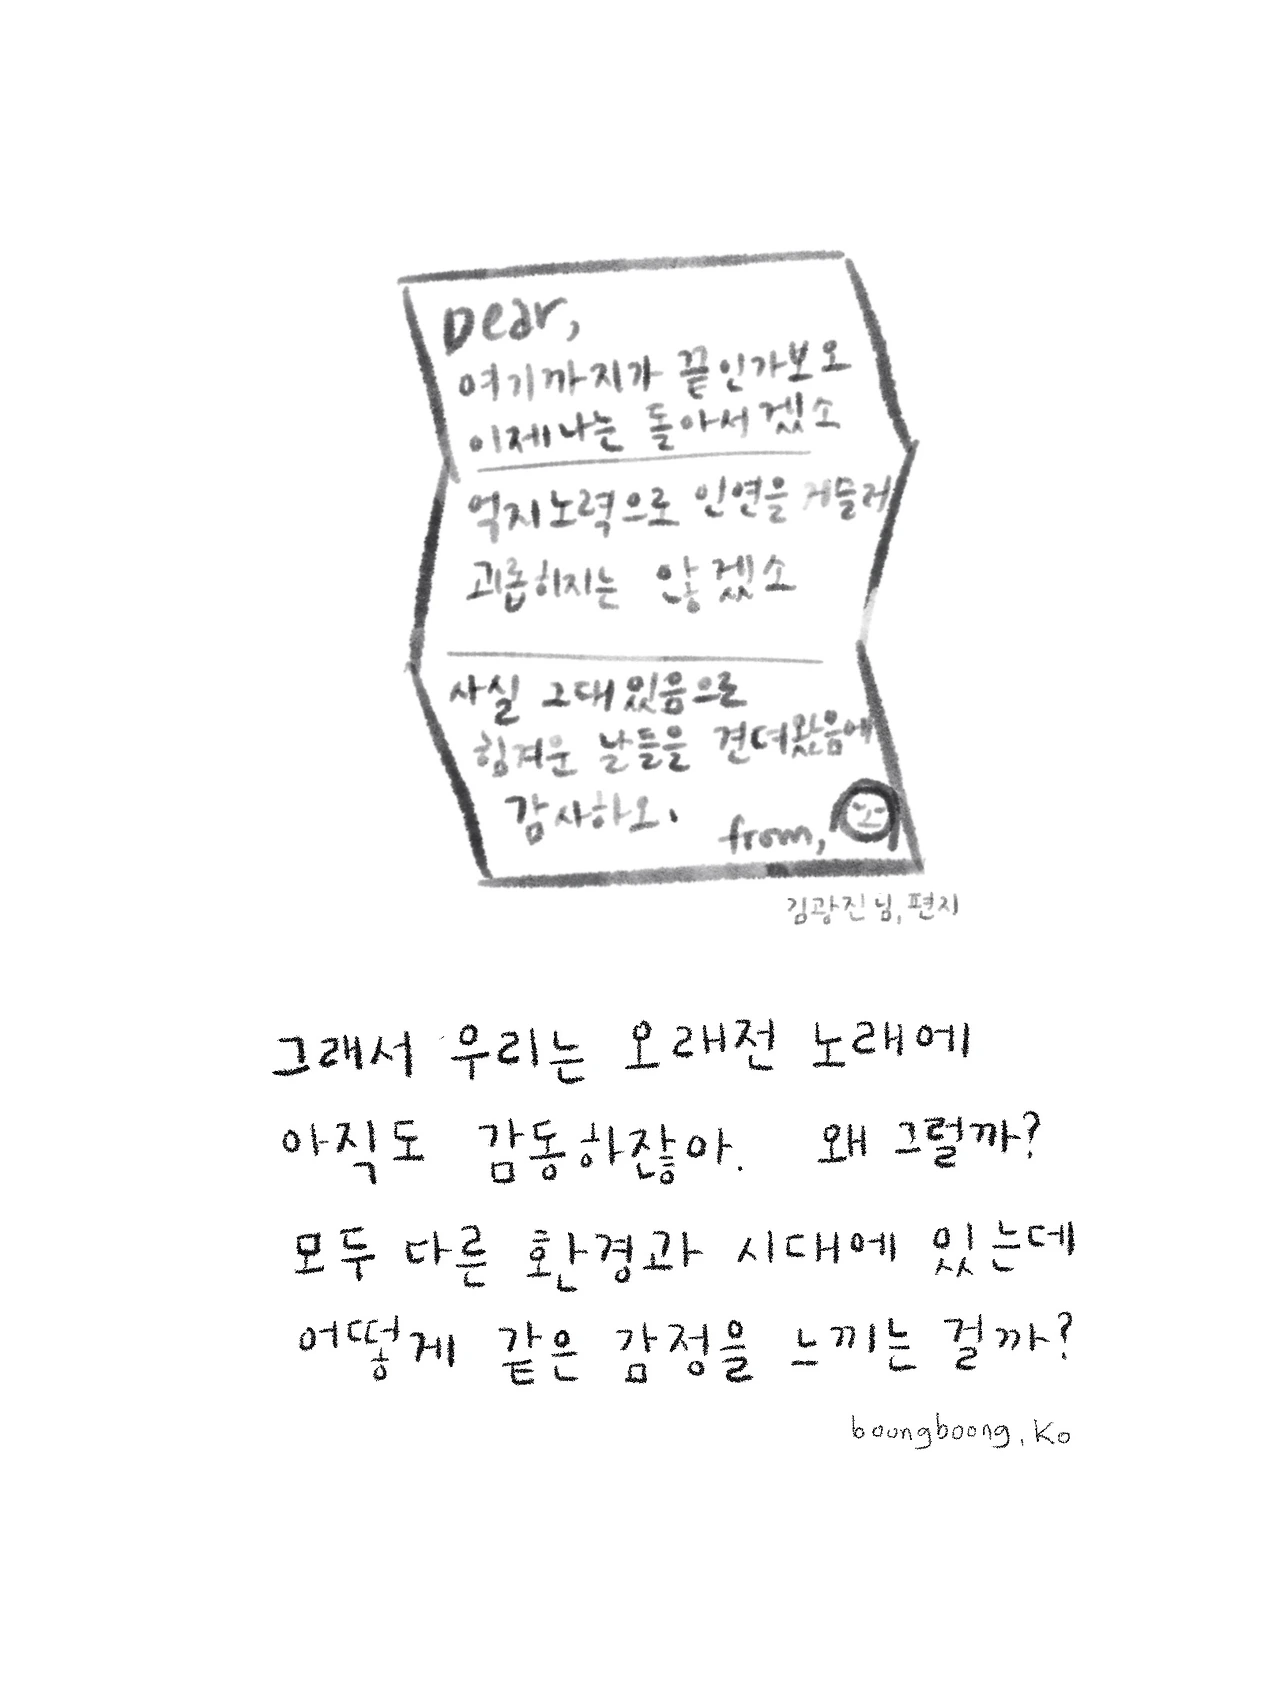 Dear,
여기까지가 끝인가보오
이제나는 돌아서겠소
억지노력으로 인연을 거슬러
괴롭히지는 않겠소
사실 그대있음으로
힘겨운 날들을 견뎌왔음에
감사하오.
from,
김광진님, 편지
그래서 우리는 오래전 노래에
아직도 감동하잖아. 왜 그럴까?
모두 다른 환경과 시대에 있는데
어떻게 같은 감정을 느끼는 걸까?
boungboong, Ko